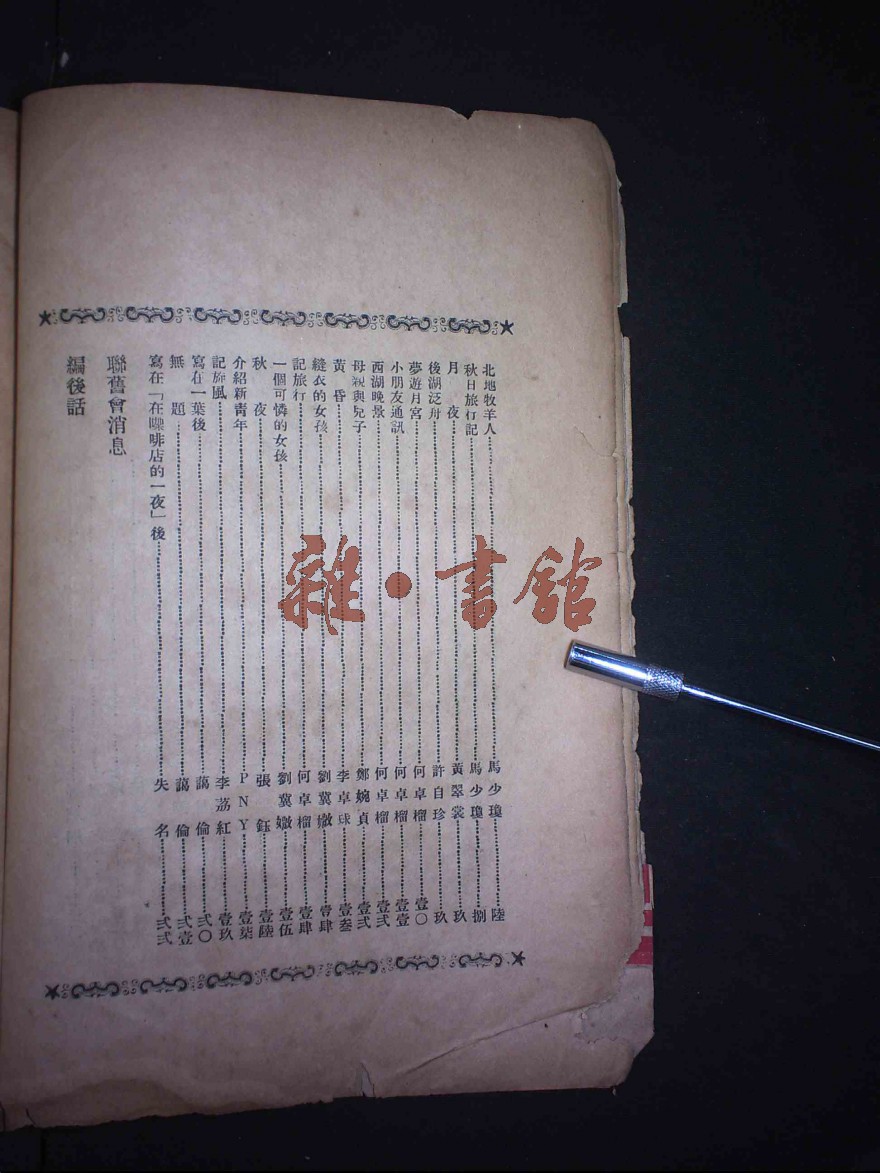 北地牧羊人………馬少瓊………陸
秋日旅行記………馬少瓊………捌
月夜………黃翠裳………玖
後湖泛舟………許自珍………玖
夢遊月宮………何卓榴………壹〇
小朋友通訊………何卓榴………壹壹
西湖晚景………何卓榴………壹貳
母親與兒子………鄭婉貞………壹貳
黃昏………李卓球………壹叁
縫衣的女孩………劉冀媺………壹肆
記旅行………何卓榴………壹肆
一個可憐的女孩………劉冀媺………壹伍
秋夜………張鈺………壹陸
介紹新靑年………PNY………壹柒
記旋風………李荔紅………壹玖
寫在一葉後………藹倫………貳〇
無題………藹倫………貳壹
寫在「在咖啡店的一夜」後………失名………貳貳
聯舊會消息
編後話
雜·書舘